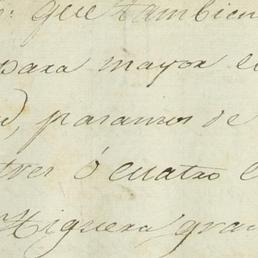 que tambien
para mayor
pasamos de
tres ó cuatro
Higuera gran